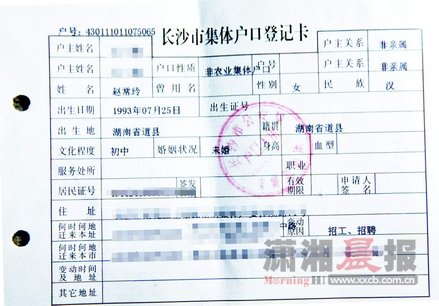 户号：430111011075065
长沙市集体户口登记卡
户主姓名 户主关系 非亲属
户主姓名 户口性质 非农业集体户口 户主关系 非亲属
姓名 赵常玲 曾用名 性别 女 民族 汉
出生日期 1993年07月25日 出生证号
出生地 湖南省道县 籍贯 湖南省道县
文化程度 初中 婚姻状况 未婚 身高 血型
服务处所 职业
居民证号 签发 有效期限 申请人签名
住址
何时何地迁来本址 中路 变动原因 招工、招聘
何时何地迁来本市
变动时间及地址
其它地址
潇湘晨报
Morning www.xxcb.com.cn